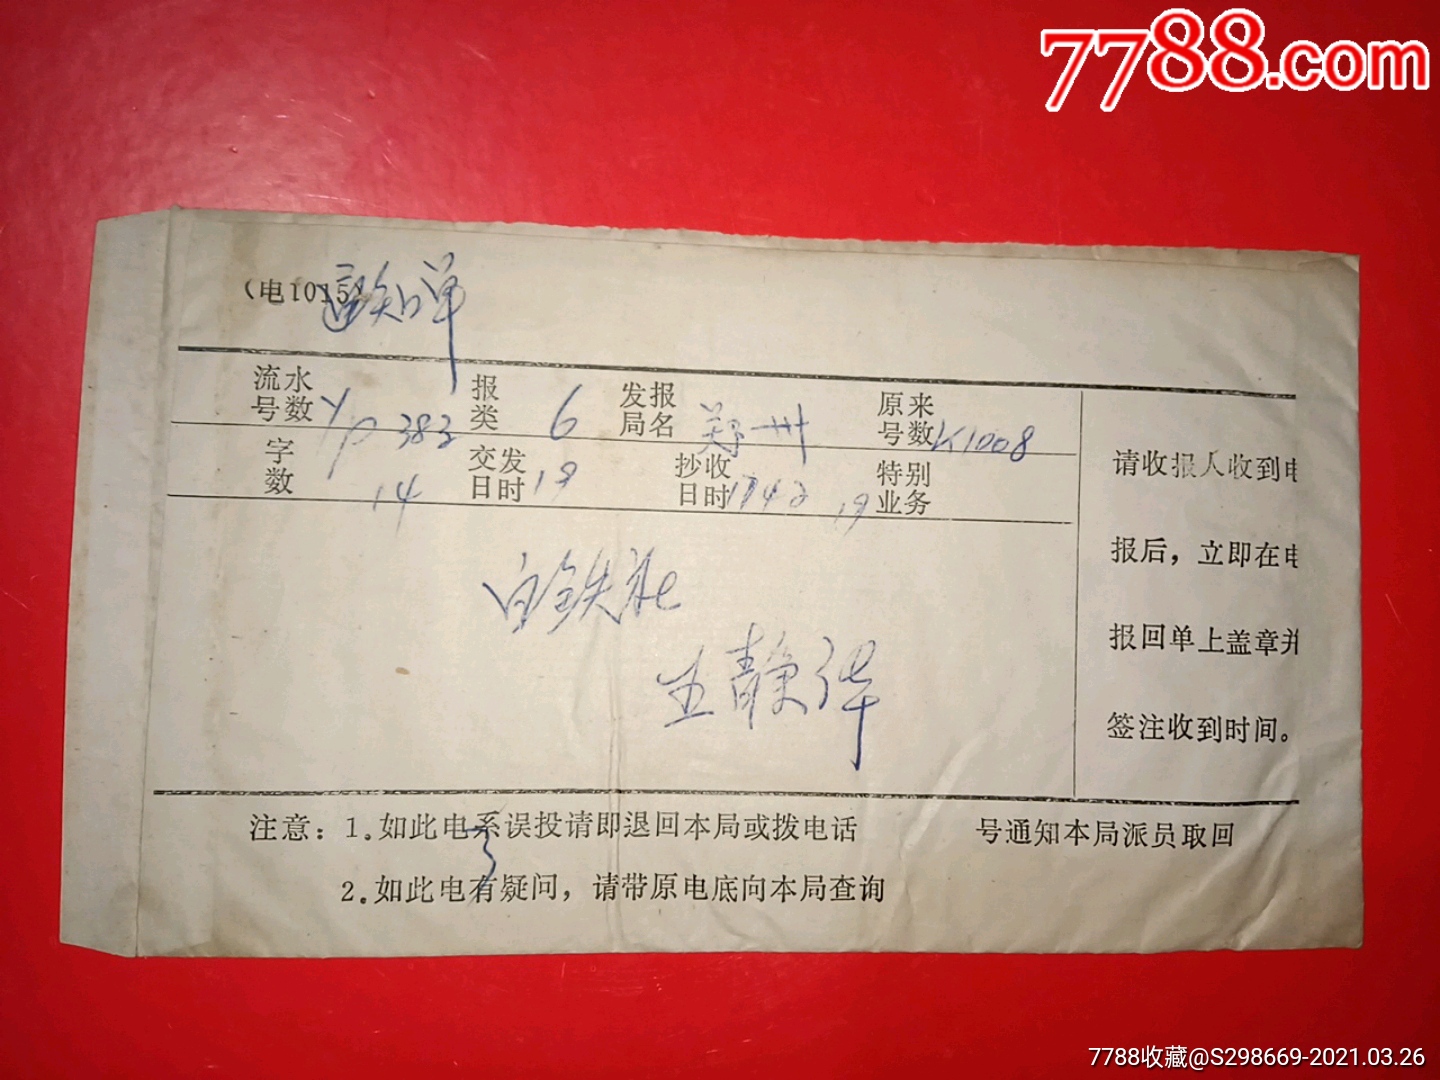 7788.com
（电1015）
通知单
流水号数 YP 383 报类 6 发报局名 郑州 原来号数 K1008
字数 14 交发日时 19 抄收日时 1742 19 特别业务
白铁社
王静华
请收报人收到电
报后，立即在电
报回单上盖章并
签注收到时间。
注意：1.如此电系误投请即退回本局或拨电话 号通知本局派员取回
2.如此电有疑问，请带原电底向本局查询
7788收藏@S298669-2021.03.26